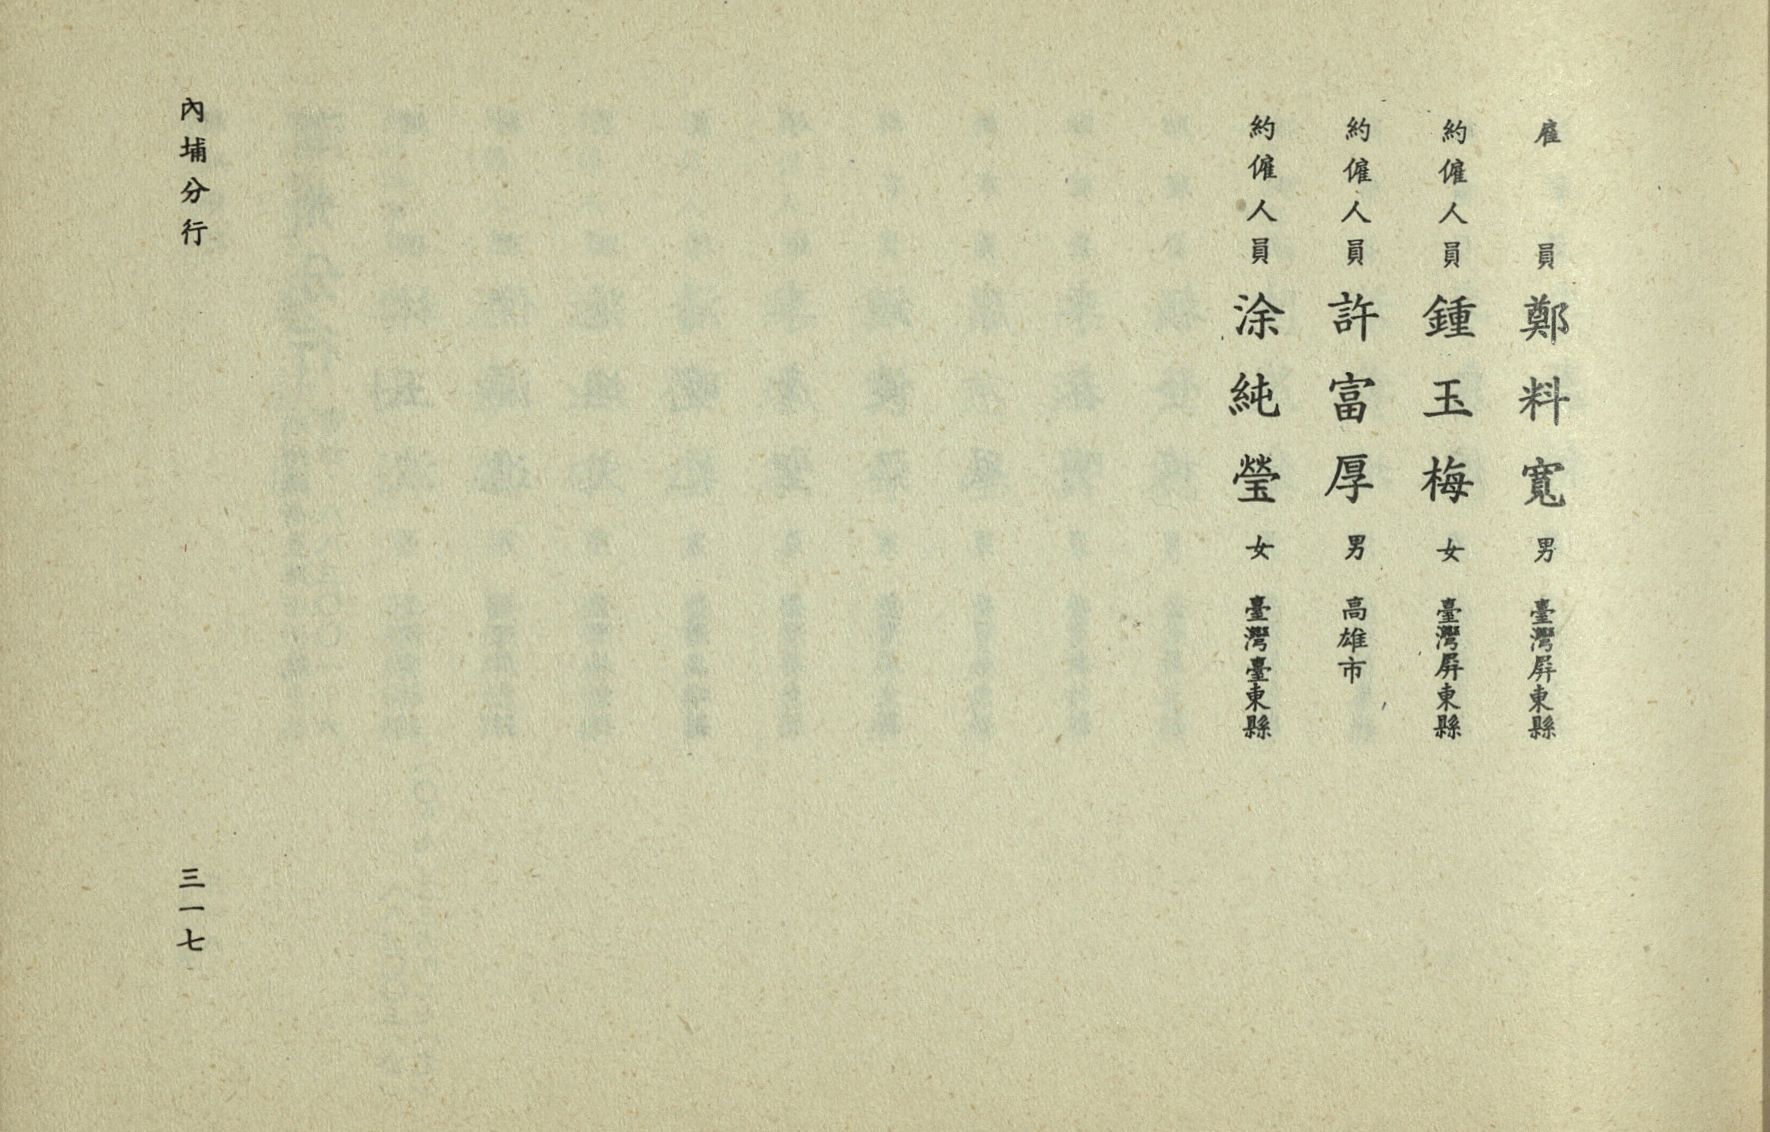 雇員鄭料寬男臺灣屏東縣
約僱人員鍾玉梅女臺灣屏東縣
約僱人員許富厚男高雄市
約僱人員涂純瑩女臺灣臺東縣
內埔分行
三一七